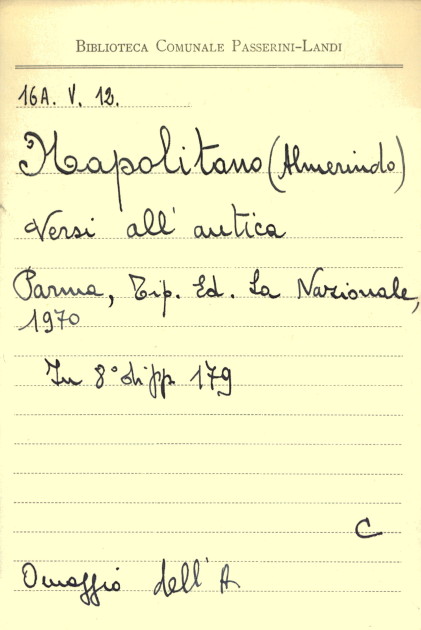 BIBLIOTECA COMUNALE PASSERINI-LANDI
16A. V. 12.
Napolitano (Almerindo)
Versi all' antica
Parma, Tip. Ed. La Nazionale,
1970
In 8° di pp 179
C
Omaggio dell' A